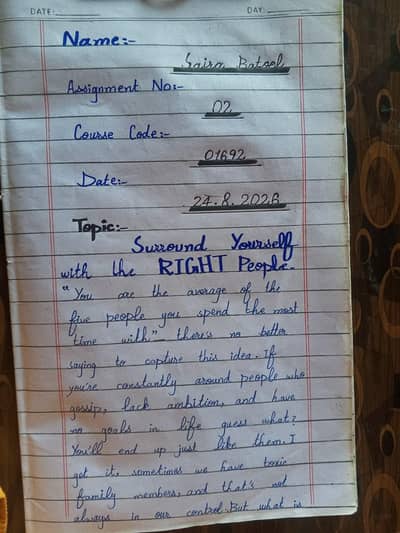 DATE: DAY:
Name:-
Saira Batool
Assignment No:-
02
Course Code:-
01692
Date:-
24.8.2026
Topic:-
Surround Yourself
with the RIGHT People.
"You are the average of the
five people you spend the most
time with" there's no better
saying to capture this idea. If
you're constantly around people who
gossip, lack ambition, and have
no goals in life guess what?
You'll end up just like them. I
get it, sometimes we have toxic
family members, and that's not
always in our control. But what is